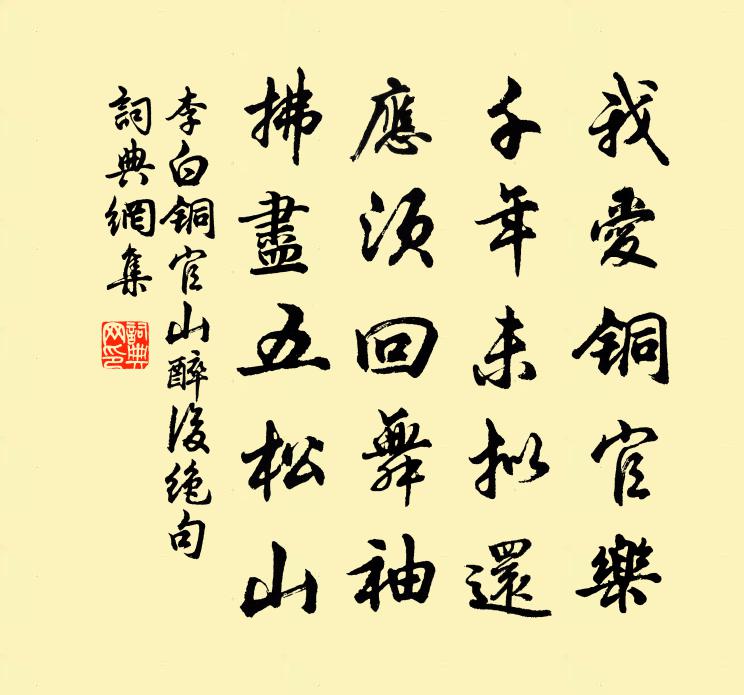 我愛銅官樂
千年未擬還
應須回舞袖
拂盡五松山
李白銅官山醉後絶句
詞典網集
詞典网印